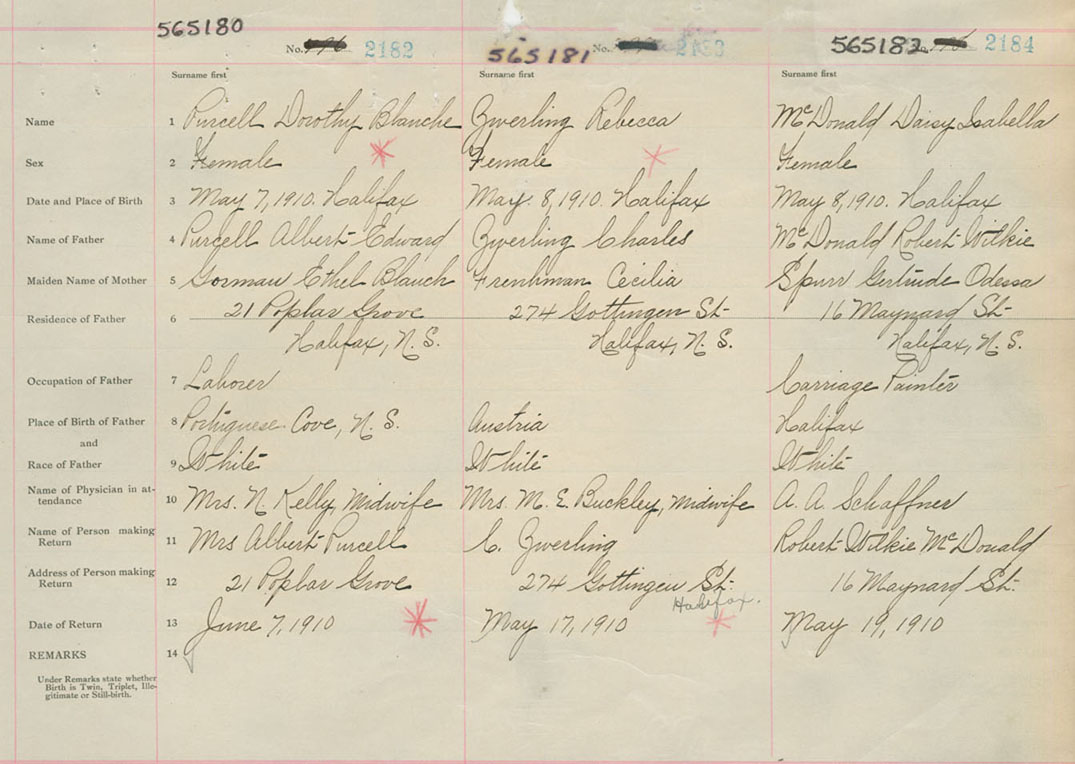 565180 565181 565182
No. 2182 No. No. 2184
Surname first Surname first Surname first
Name 1 Purcell Dorothy Blanche Zwerling Rebecca McDonald Daisy Isabella
Sex 2 Female Female Female
Date and Place of Birth 3 May 7, 1910. Halifax May. 8, 1910. Halifax May 8, 1910. Halifax
Name of Father 4 Purcell Albert Edward Zwerling Charles McDonald Robert Wilkie
Maiden Name of Mother 5 Gorman Ethel Blanch Frenhman Cecilia Spurr Gertrude Odessa
Residence of Father 6 21 Poplar Grove 274 Gottingen St. 16 Maynard St.
Halifax, N. S. Halifax, N. S. Halifax, N. S.
Occupation of Father 7 Laborer Carriage Painter
Place of Birth of Father 8 Portuguese Cove, N. S. Austria Halifax
and
Race of Father 9 White White White
Name of Physician in at-
tendance 10 Mrs. N. Kelly, Midwife Mrs. M. E. Buckley, Midwife A. A. Schaffner
Name of Person making
Return 11 Mrs Albert Purcell C. Zwerling Robert Wilkie McDonald
Address of Person making
Return 12 21 Poplar Grove 274 Gottingen St. 16 Maynard St.
Halifax.
Date of Return 13 June 7, 1910 May 17, 1910 May 19, 1910
REMARKS 14
Under Remarks state whether
Birth is Twin, Triplet, Ille-
gitimate or Still-birth.